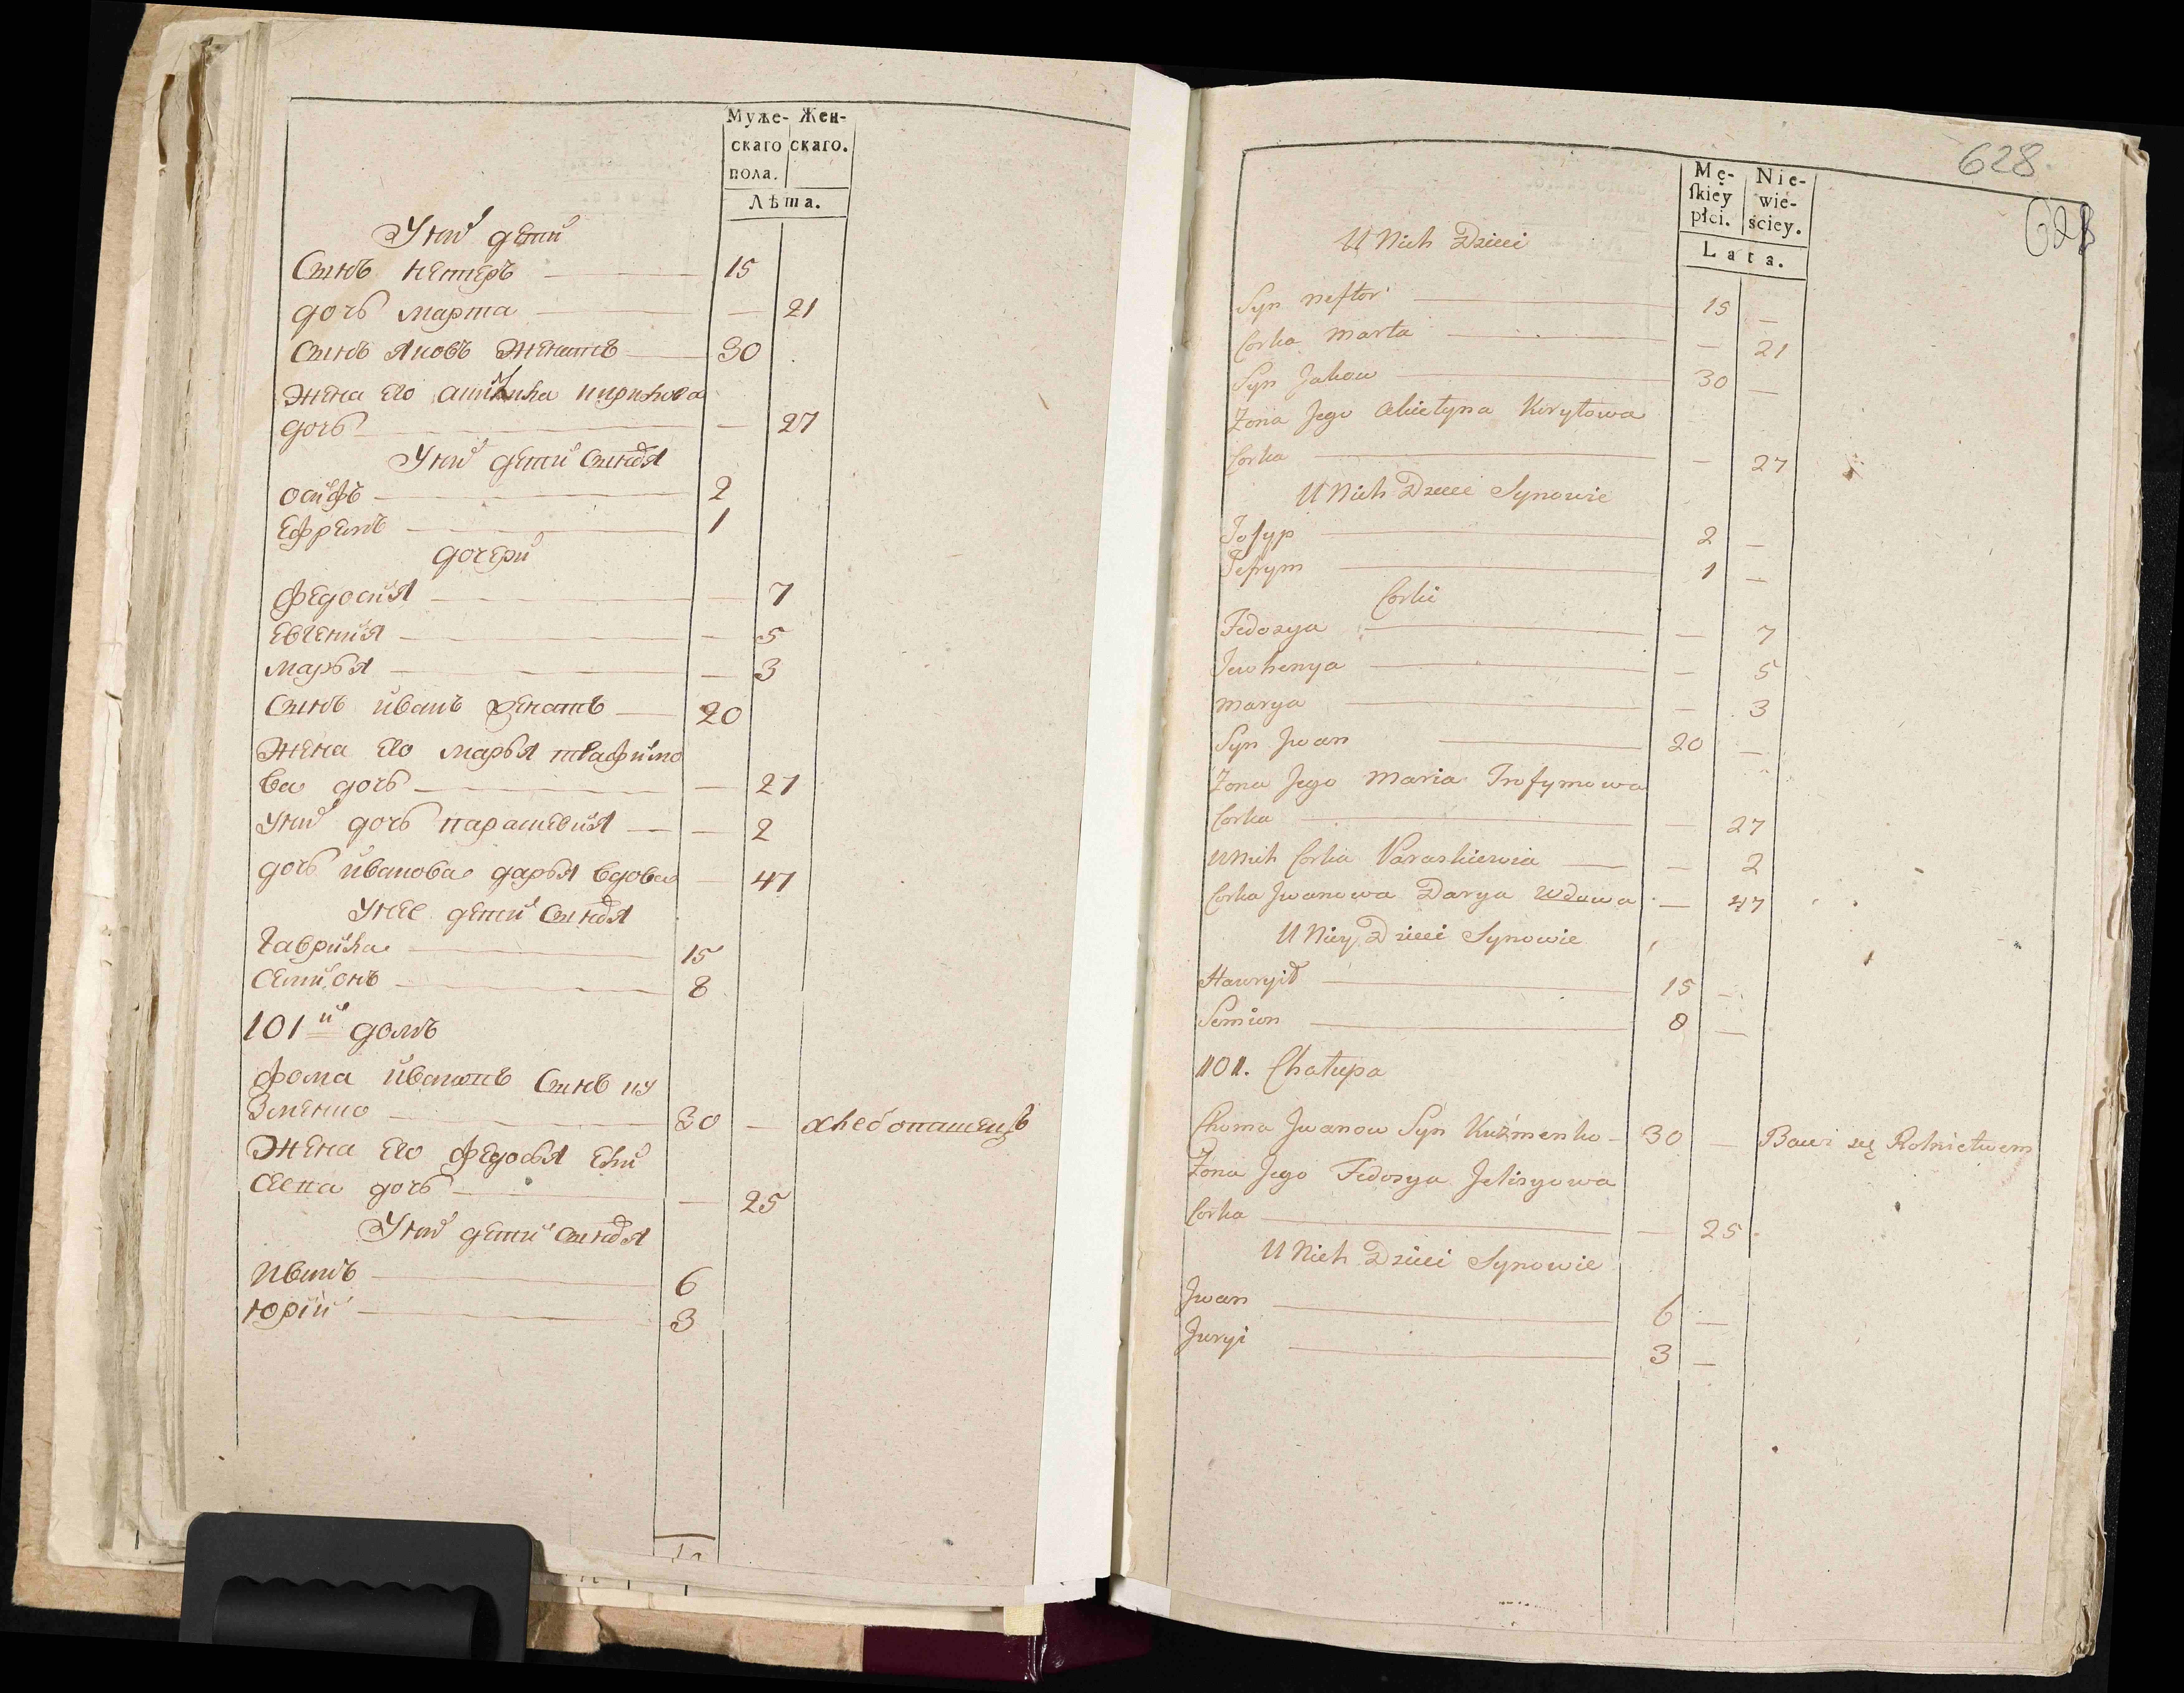 Муже- Жен-
скаго скаго.
пола.
Лѣта.
У них дети
Сынъ нестеръ 15
дочь марта — 21
Сынъ Яковъ Женатъ 30
Жена его кирилова
дочь — 27
У них дети Сыновя
осифъ 2
Ефремъ 1
дочери
федосия — 7
Евгения — 5
марья — 3
Сынъ иванъ женатъ 20
Жена его марья трафимо
ва дочь — 27
У них дочь параскевия — 2
дочь иванова дарья вдова — 47
У нее дети Сыновя
гаврила 15
Семионъ 8
101й домъ
фома ивановъ Сынъ ку
зменко 30 — хлебопашецъ
Жена его федосья ели
сеева дочь — 25
У них дети Сыновя
Иванъ 6
юрий 3
628
628
Mę- Nie-
ſkiey wie-
płci. ściey.
Lata.
U Nich Dzieci
Syn Nestor 15 —
Corka Marta — 21
Syn Jakow 30 —
Zona Jego Kiryłowa
Corka — 27
U Nich Dzieci Synowie
Josyp 2 —
Jefrym 1 —
Corki
Fedosya — 7
Jewhenya — 5
Marya — 3
Syn Jwan 20 —
Zona Jego Maria Trofymowa
Corka — 27
U Nich Corka Paraskiewia — 2
Corka Jwanowa Darya Wdowa — 47
U Niey Dzieci Synowie
Hawryił 15 —
Semion 8 —
101. Chałupa
Choma Jwanow Syn Kuźmenko 30 — Bawi się Rolnictwem
Zona Jego Fedosya Jelisyowa
Corka — 25
U Nich Dzieci Synowie
Jwan 6 —
Juryi 3 —